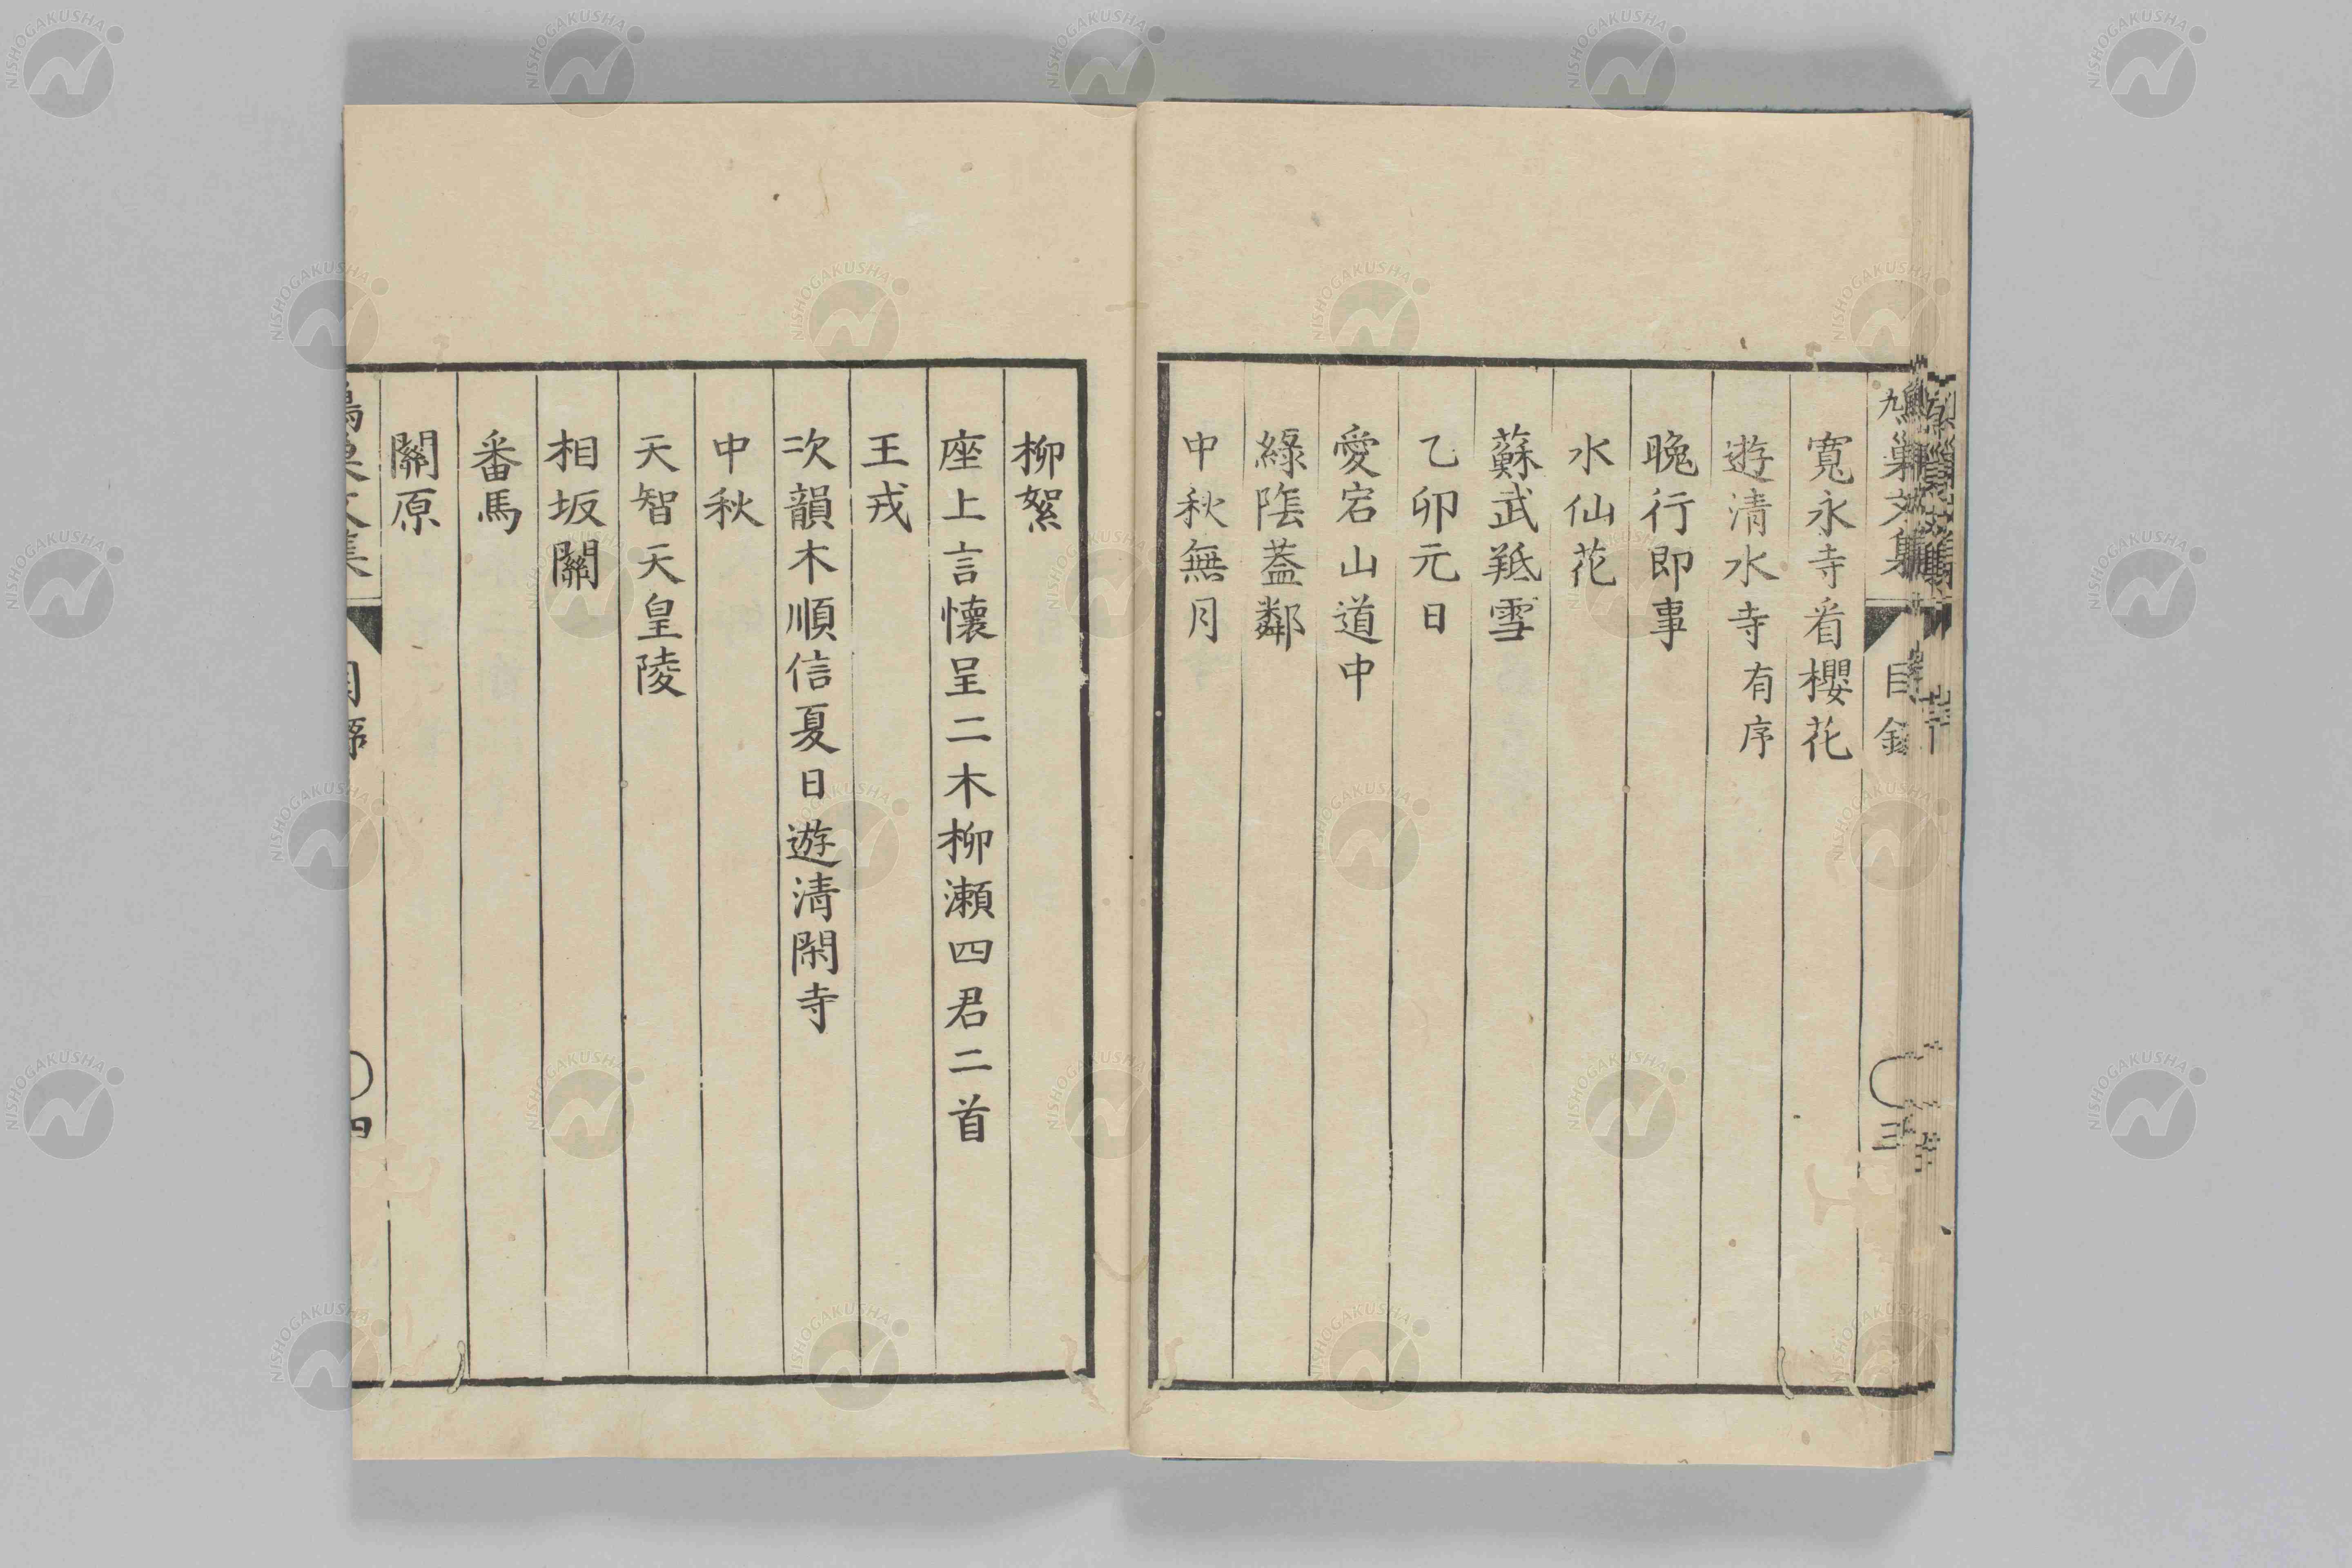 寬永寺看櫻花
遊清水寺有序
晚行即事
水仙花
蘇武羝雪
乙卯元日
愛宕山道中
綠陰蓋鄰
中秋無月
目錄
三
柳絮
座上言懷呈二木柳瀨四君二首
王戎
次韻木順信夏日遊清閑寺
中秋
天智天皇陵
相坂關
番馬
關原
四
NISHOGAKUSHA